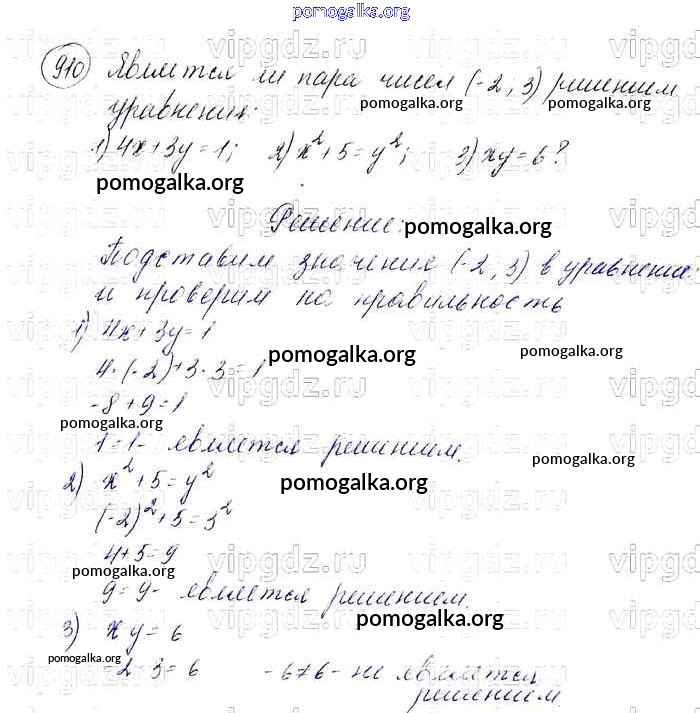 pomogalka.org
910 Является ли пара чисел (-2; 3) решением
pomogalka.org pomogalka.org
уравнения:
1) 4x+3y=1; 2) x²+5=y²; 3) xy=6?
pomogalka.org pomogalka.org
Решение: pomogalka.org
Подставим значения (-2, 3) в уравнение
и проверим на правильность
1) 4x+3y=1
pomogalka.org pomogalka.org
4·(-2)+3·3=1
-8+9=1
pomogalka.org
1=1- является решением.
pomogalka.org
2) x²+5=y²
pomogalka.org
(-2)²+5=3²
4+5=9
pomogalka.org
9=9- является решением.
pomogalka.org
3) xy=6
pomogalka.org
-2·3=6 -6≠6- не является
решением.
vipgdz.ru